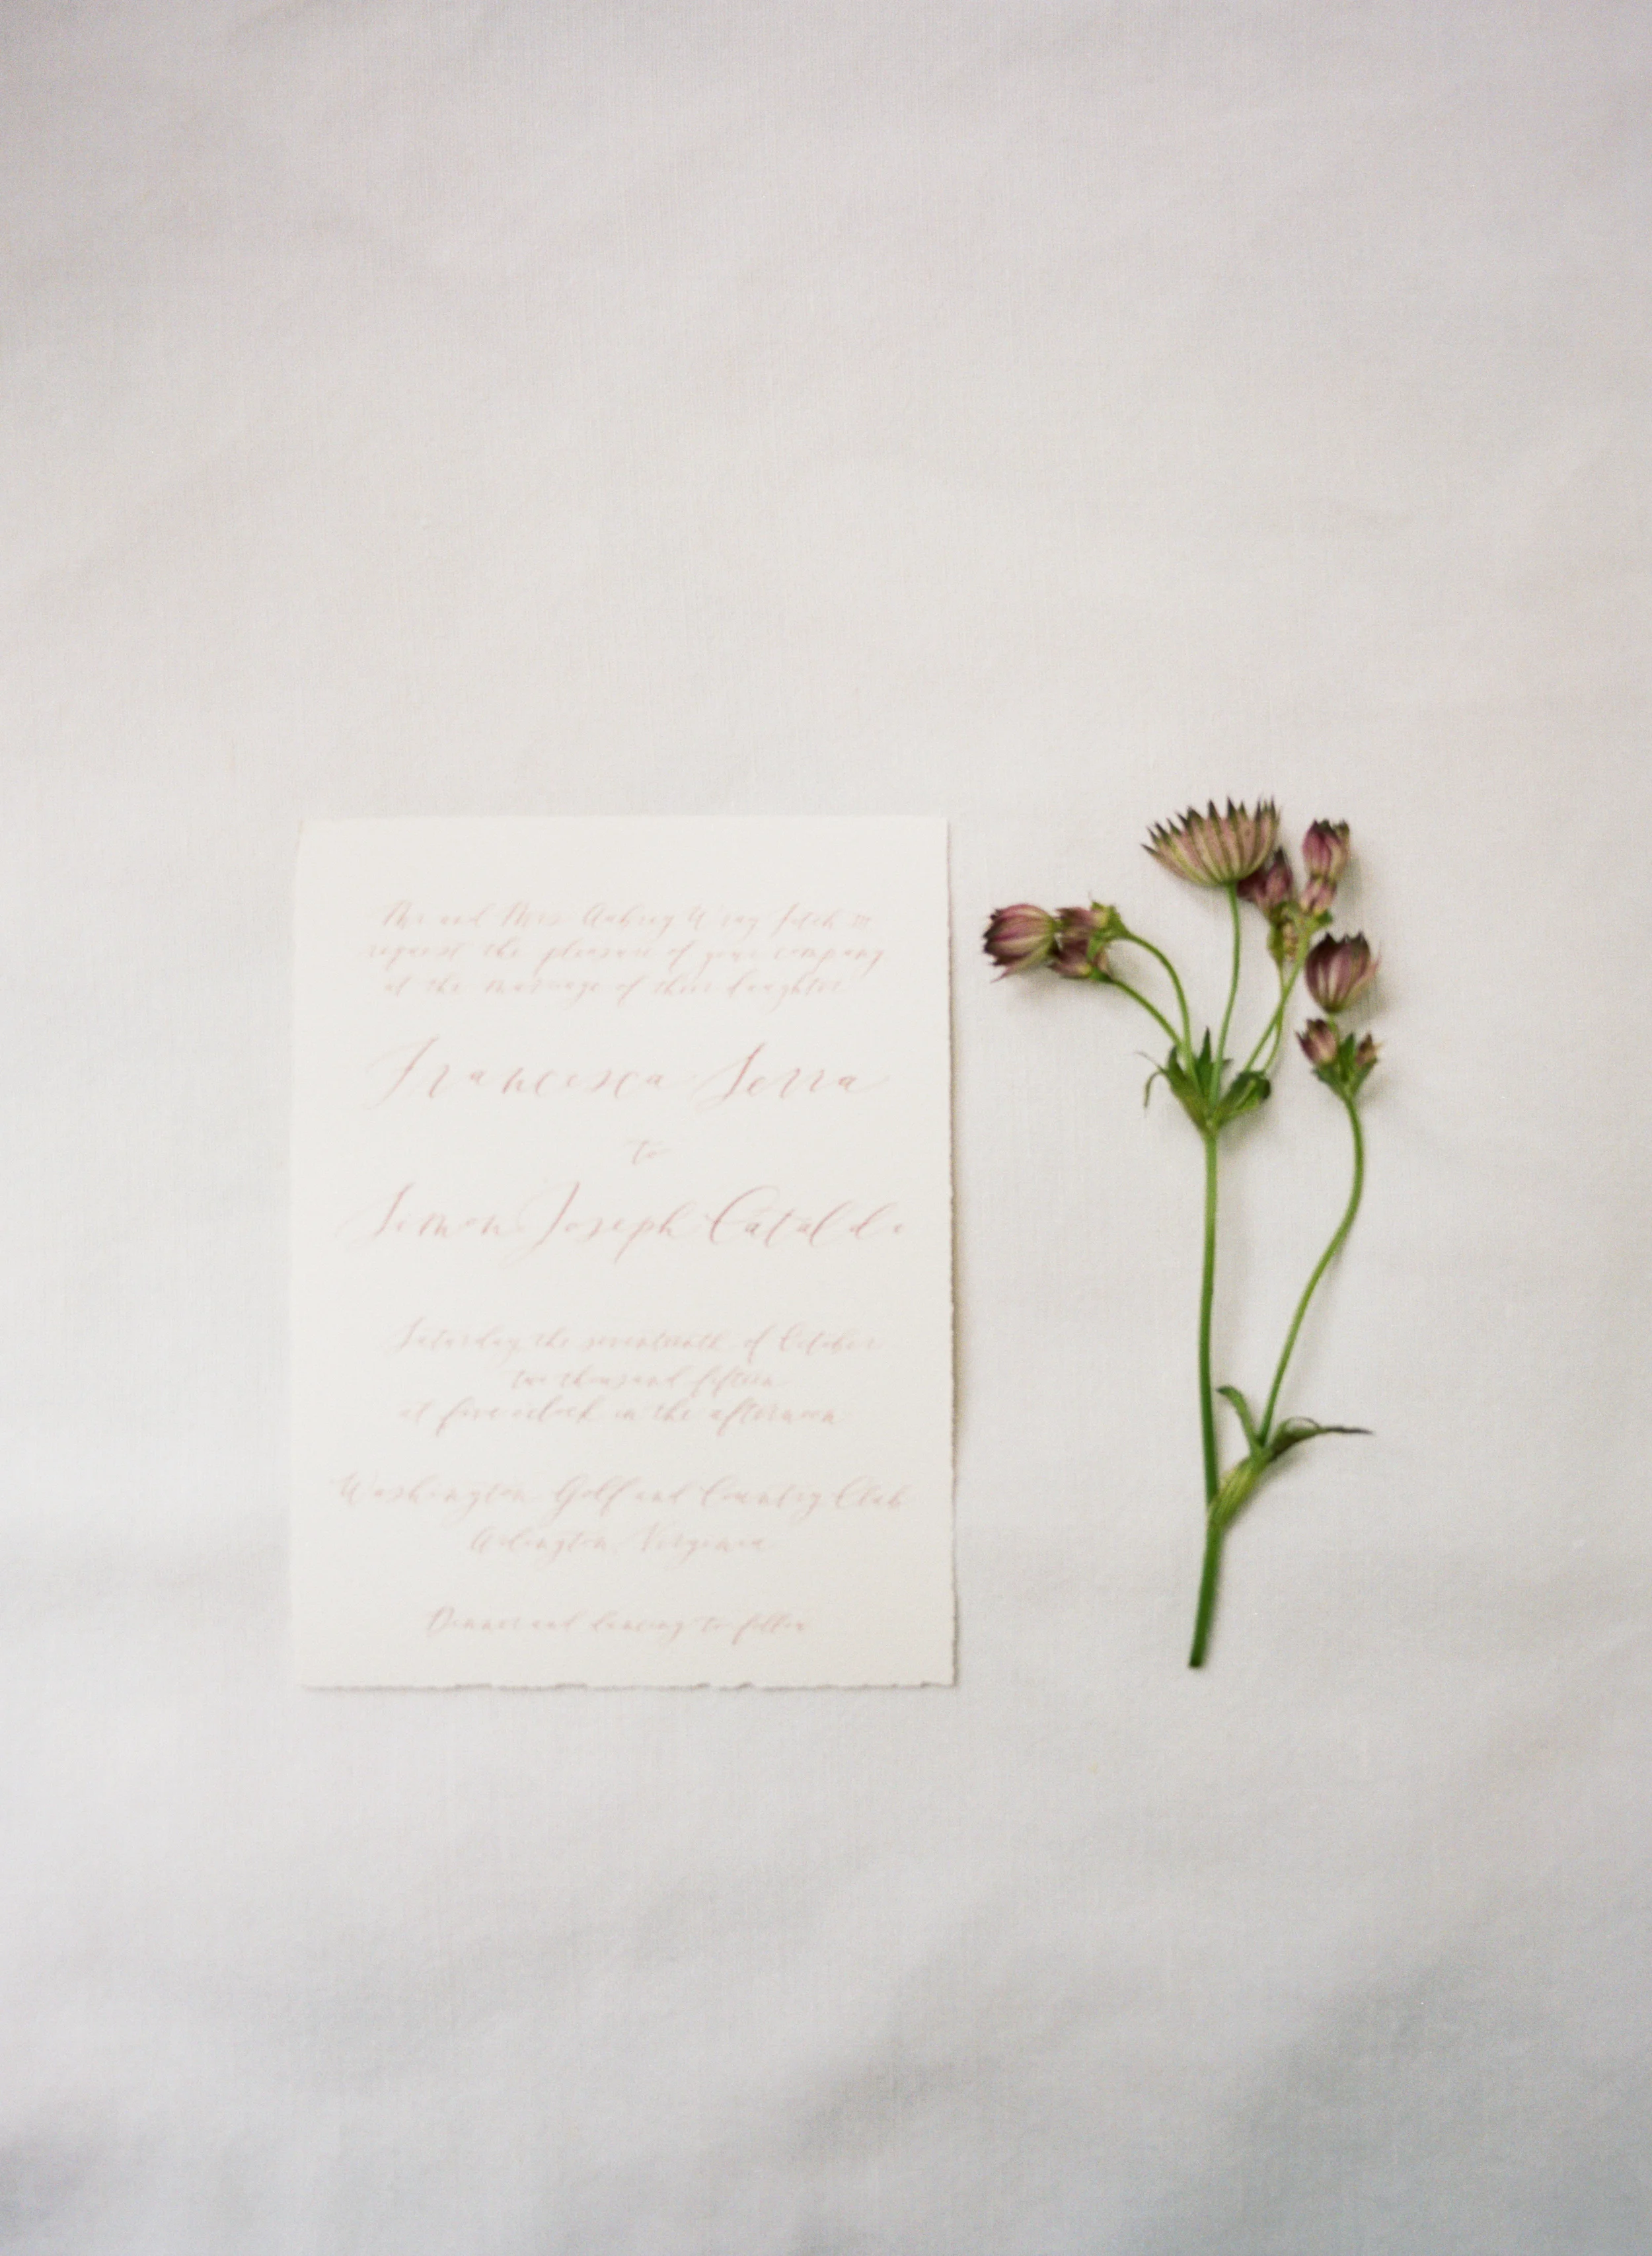 Mr and Mrs Aubrey Wray Fitch III
request the pleasure of your company
at the marriage of their daughter
Francesca Serra
to
Simon Joseph Cataldo
Saturday, the seventeenth of October
two thousand fifteen
at five o'clock in the afternoon
Washington Golf and Country Club
Arlington, Virginia
Dinner and dancing to follow